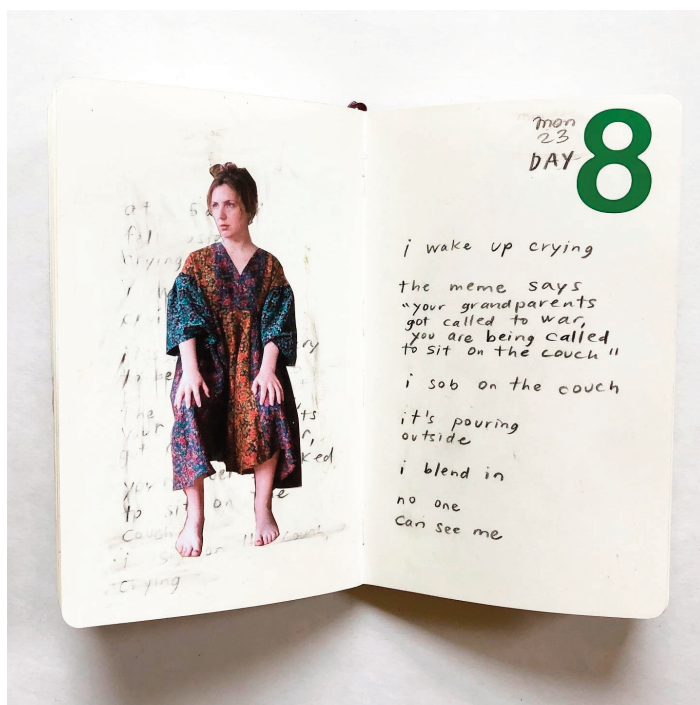 at 5
crying
your
to sit on the
couch
i
crying
mon
23
DAY 8
i wake up crying
the meme says
"your grandparents
got called to war,
you are being called
to sit on the couch"
i sob on the couch
it's pouring
outside
i blend in
no one
can see me